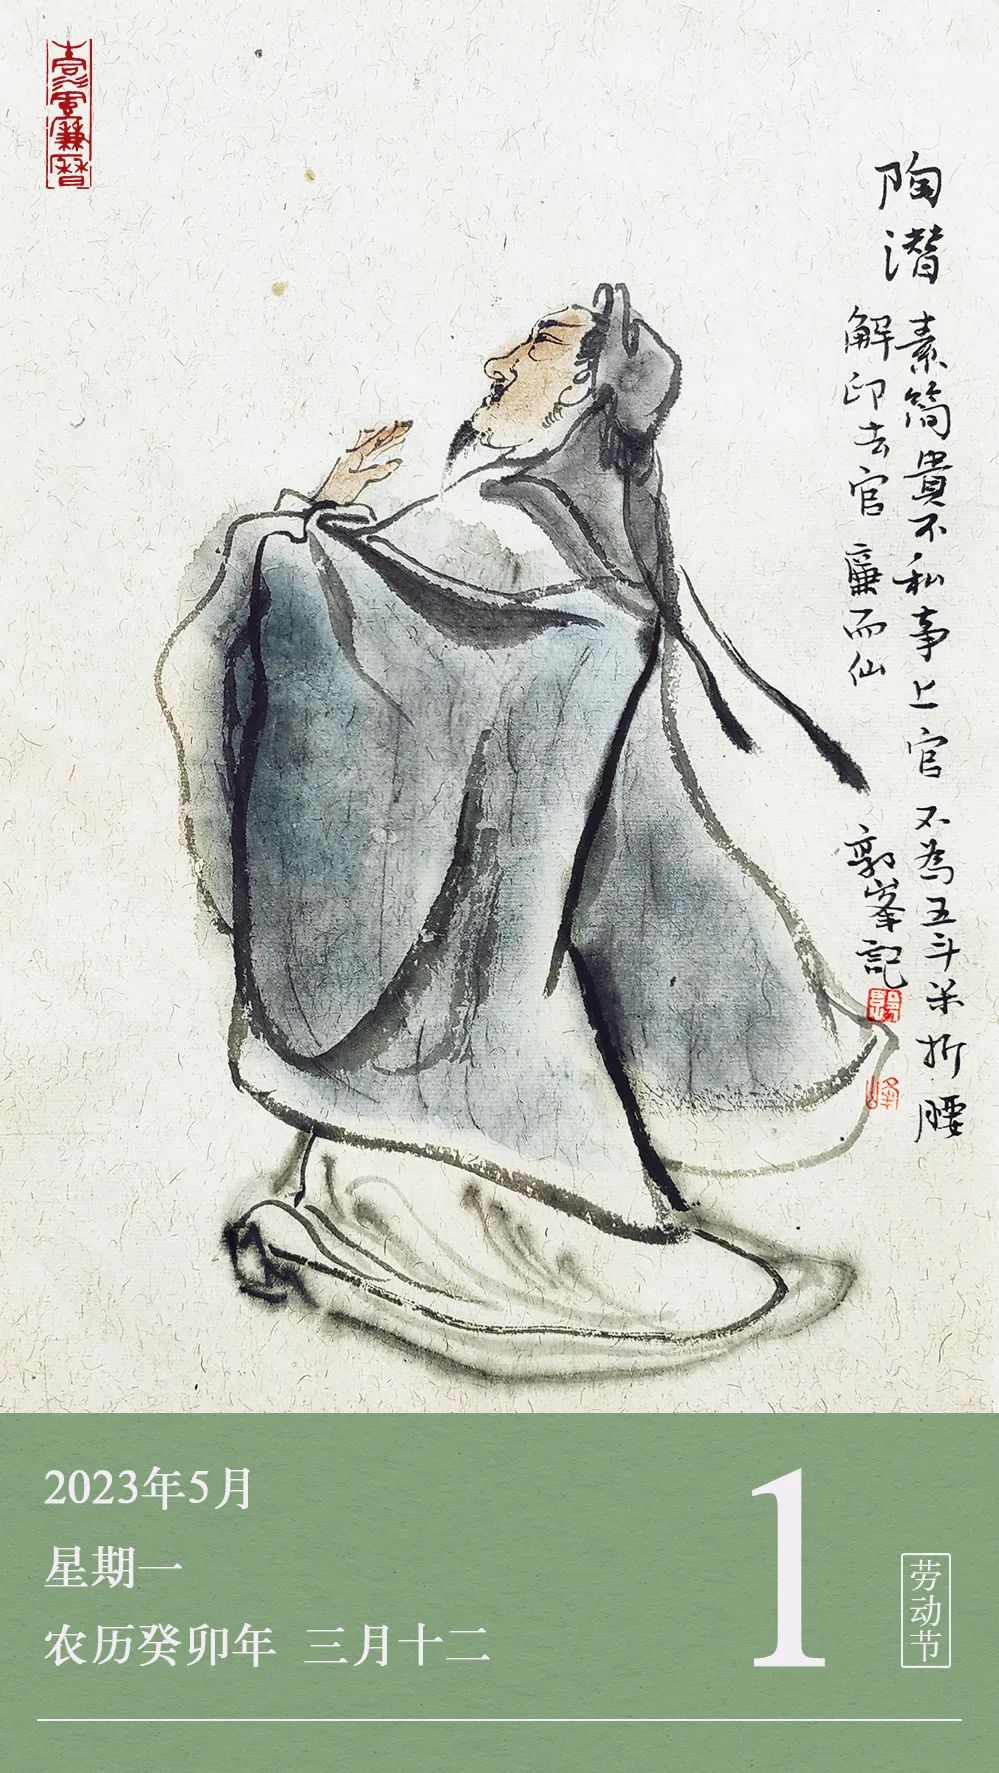 陶潛
素簡貴不私事上官不為五斗米折腰
解印去官廉而仙
郭峯記
2023年5月
星期一
农历癸卯年 三月十二
1
劳动节